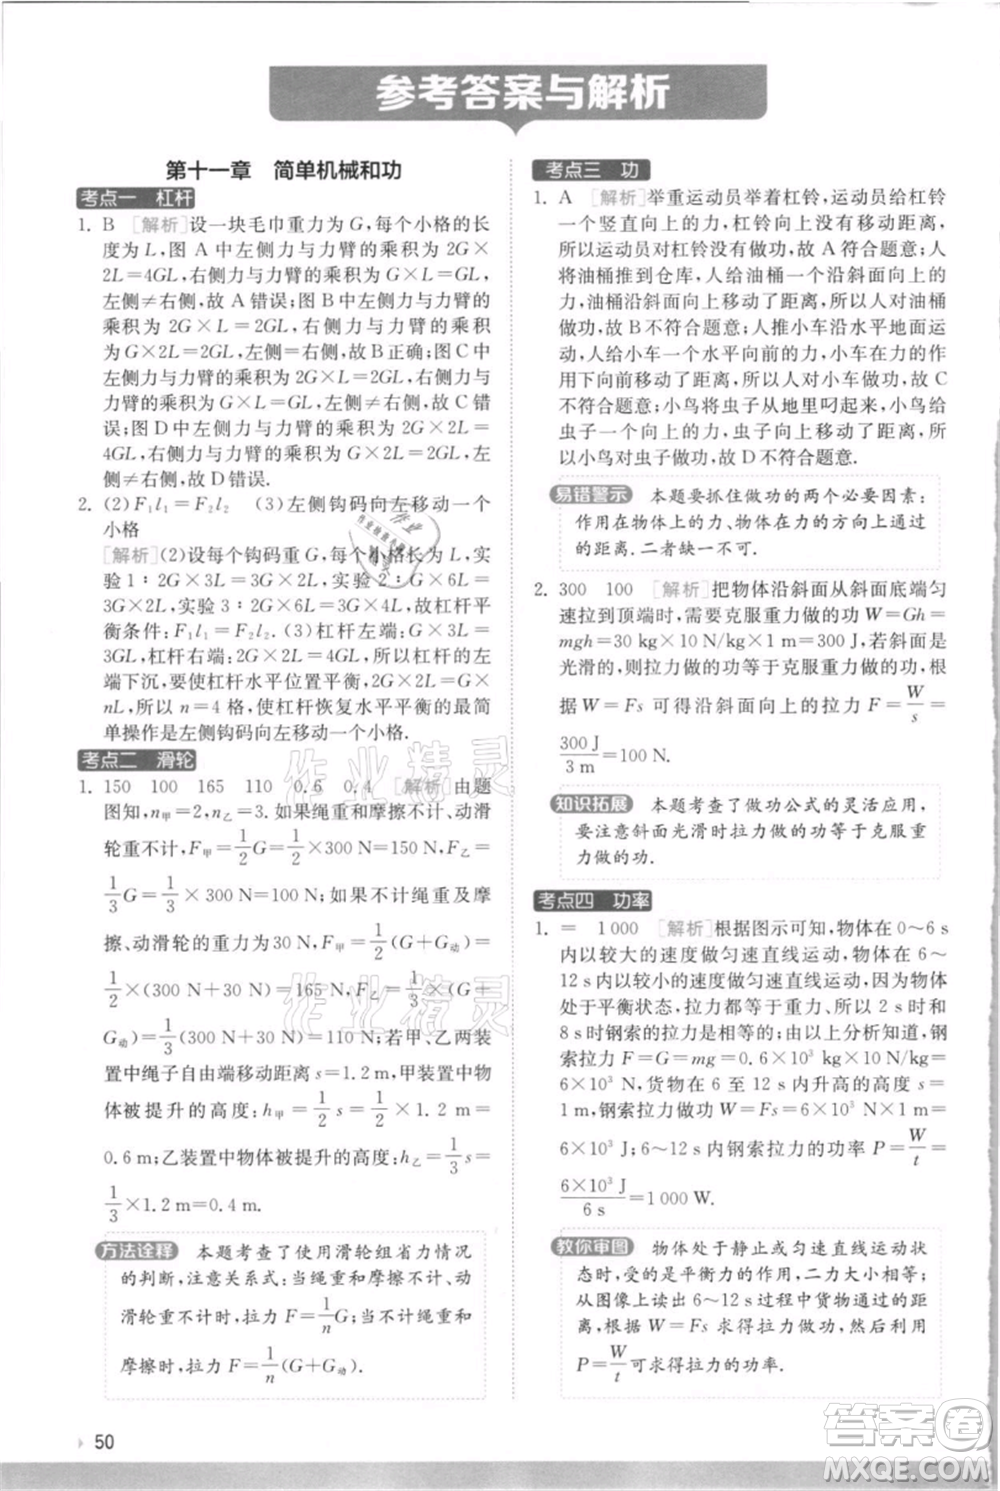 参考答案与解析
第十一章　简单机械和功
考点一　杠杆
1. B　[解析]设一块毛巾重力为 G,每个小格的长
度为 L,图 A 中左侧力与力臂的乘积为 2G×
2L=4GL,右侧力与力臂的乘积为 G×2L=2GL,
左侧≠右侧,故 A 错误;图 B 中左侧力与力臂的
乘积为 2G×L=2GL,右侧力与力臂的乘积为
G×2L=2GL,左侧=右侧,故 B 正确;图 C 中左
侧力与力臂的乘积为 G×2L=2GL,右侧力与力
臂的乘积为 G×L=GL,左侧≠右侧,故 C 错
误;图 D 中左侧力与力臂的乘积为 2G×2L=
4GL,右侧力与力臂的乘积为 G×L=GL,左
侧≠右侧,故 D 错误.
2. (2) F₁l₁=F₂l₂　(3)左侧钩码向左移动一个
小格
[解析](2)设每个钩码重 G,每个小格长为 L,实
验 1∶2G×3L=3G×2L,实验 2∶G×6L=
3G×2L,实验 3∶2G×4L=4G×2L,故杠杆平
衡条件:F₁l₁=F₂l₂.(3)杠杆左端:2G×3L=
6GL,杠杆右端:2G×2L=4GL,所以杠杆的左
端下沉,要使杠杆水平位置平衡,则 2G×3L=G×
nL,所以 n=4 格,使杠杆恢复水平平衡的最简
单操作是左侧钩码向左移动一个小格.
考点二　滑轮
1. 150　100　165　110　0.6　0.4　[解析]由题
图知,n甲=2,n乙=3.如果绳重和摩擦不计、动滑
轮重不计,F甲=1/2 G=1/2×300 N=150 N,F乙=
1/3 G=1/3×300 N=100 N;如果不计绳重和摩
擦、动滑轮的重力为 30 N,F甲=1/2(G+G动)=
1/2×(300 N+30 N)=165 N,F乙=1/3×(G+
G动)=1/3(300 N+30 N)=110 N;若甲、乙两装
置中绳子自由端移动距离 s=1.2 m,甲装置中物
体被提升的高度:h甲=1/2 s=1/2×1.2 m=
0.6 m;乙装置中物体被提升的高度:h乙=1/3 s=
1/3×1.2 m=0.4 m.
方法诠释　本题考查了使用滑轮组省力情况
的判断,注意关系式:当绳重和摩擦不计、动
滑轮重不计时,拉力 F=1/n G;当不计绳重和
摩擦时,拉力 F=1/n(G+G动).
50
考点三　功
1. A　[解析]举重运动员举着杠铃,运动员给杠铃
一个竖直向上的力,杠铃向上没有移动距离,
所以运动员对杠铃没有做功,故 A 符合题意;人
将油桶推到仓库,人给油桶一个沿斜面向上的
力,油桶沿斜面向上移动了距离,所以人对油桶
做功,故 B 不符合题意;人推小车沿水平地面前
进,人给小车一个水平向前的力,小车在力的作
用下向前移动了距离,所以人对小车做功,故 C
不符合题意;小鸟将虫子从地里叼起来,小鸟给
虫子一个向上的力,虫子向上移动了距离,所以
小鸟对虫子做功,故 D 不符合题意.
易错警示　本题要抓住做功的两个必要因素:
作用在物体上的力、物体在力的方向上通过
的距离.二者缺一不可.
2. 300　100　[解析]把物体沿斜面从斜面底端匀
速拉到顶端时,需要克服重力做的功 W=Gh=
mgh=30 kg×10 N/kg×1 m=300 J,若斜面是
光滑的,则拉力做的功等于克服重力做的功,根
据 W=Fs 可得沿斜面向上的拉力 F=W/s=
300 J/3 m=100 N.
知识拓展　本题考查了做功公式的灵活应用,
要注意斜面光滑时拉力做的功等于克服重
力做的功.
考点四　功率
1. =　1 000　[解析]根据图示可知,物体在 0～6 s
内以较大的速度做匀速直线运动,物体在 6～
12 s内以较小的速度做匀速直线运动,因为物体
处于平衡状态,拉力都等于重力,所以 2 s 时和
8 s时钢索的拉力相等;由以上分析知道,钢
索拉力 F=G=mg=0.6×10³ kg×10 N/kg=
6×10³ N,货物在 6 至 12 s 内升高的高度是
1 m,钢索拉力做的功 W=Fs=6×10³ N×1 m=
6×10³ J;6～12 s内钢索拉力的功率 P=W/t=
6×10³ J/6 s=1 000 W.
教你审图　物体处于静止或匀速直线运动状
态时,受的是平衡力的作用,二力大小相等;
从图像上读出 6～12 s 中货物通过的距离,
根据 W=Fs 可求得拉力做的功,然后利用
P=W/t可求得拉力的功率.
作业精灵
作业精灵
答案卷
MXQE.COM